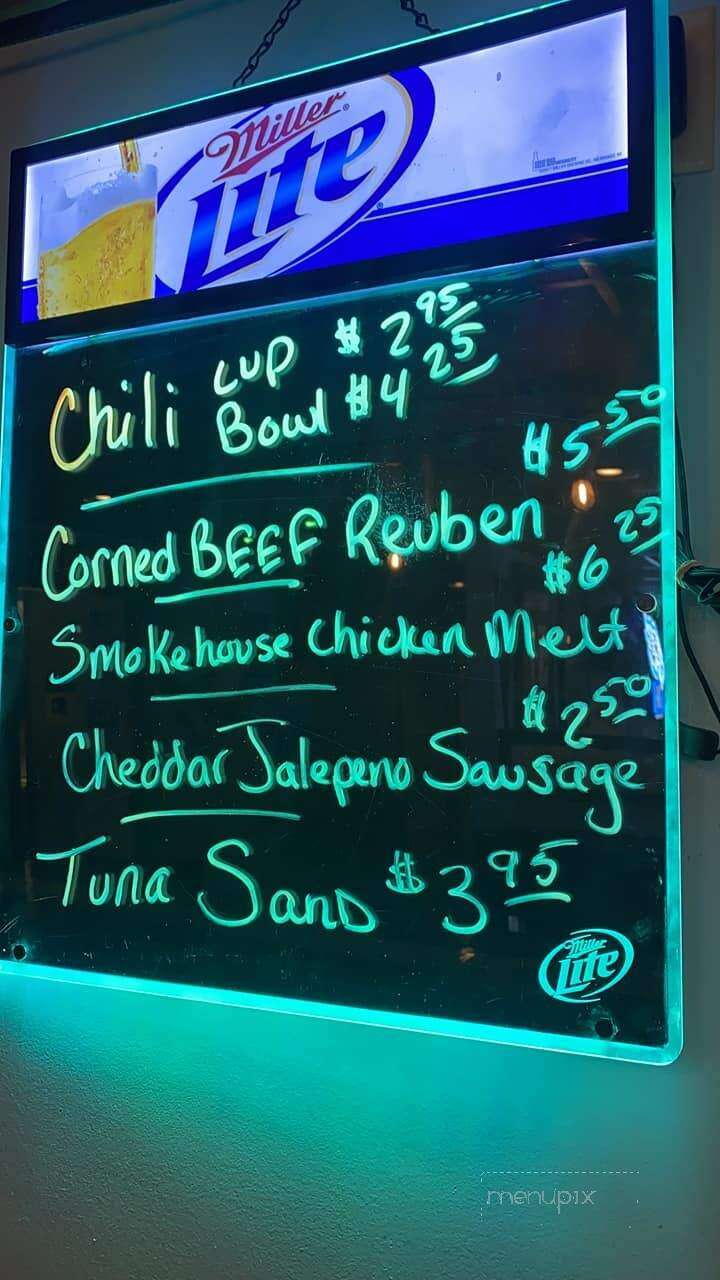 Miller
Lite
Chili cup $2.95
Bowl $4.25
$5.50
Corned BEEF Reuben
$6.25
Smokehouse Chicken Melt
$2.50
Cheddar Jalepeno Sausage
Tuna Sand $3.95
Miller
Lite
menupix